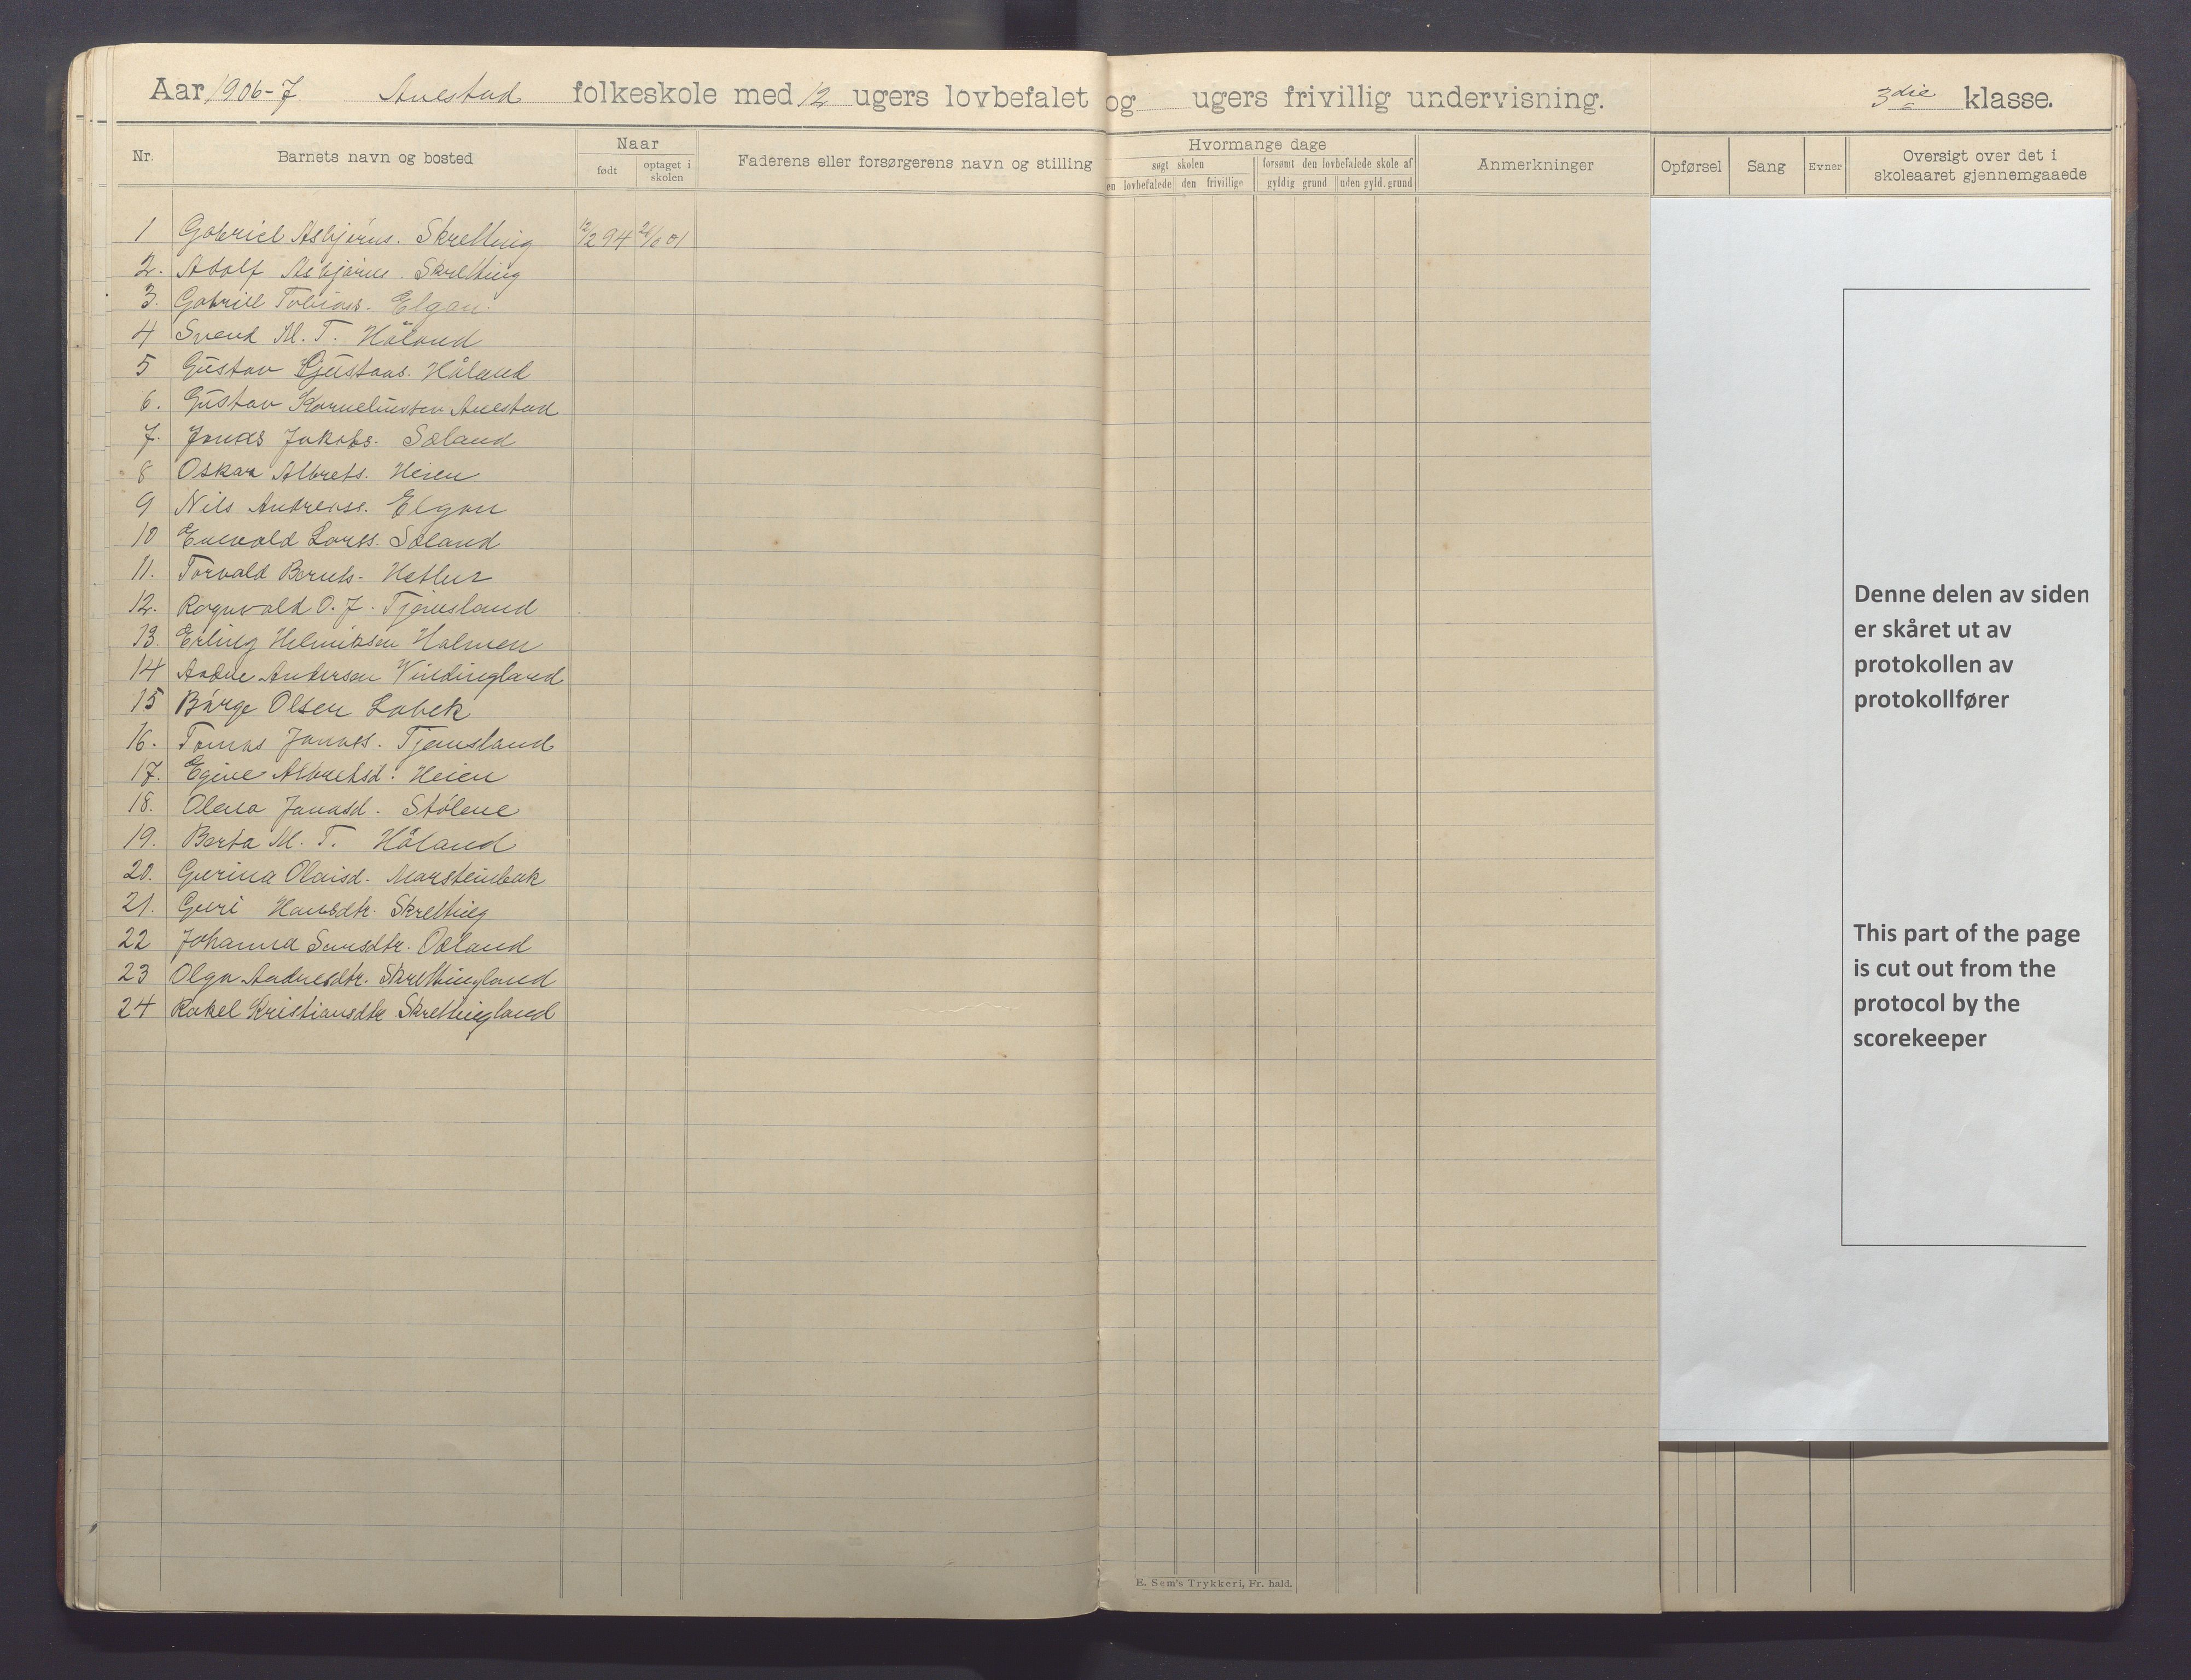 Aar 1906-7 Auestad folkeskole med 12 ugers lovbefalet og ugers frivillig undervisning. 3die klasse.
Nr.
Barnets navn og bosted
Naar
født
optaget i skolen
Faderens eller forsørgerens navn og stilling
Hvormange dage
søgt skolen
en lovbefalede
den frivillige
forsømt den lovbefalede skole af
gyldig grund
uden gyld. grund
Anmerkninger
Opførsel
Sang
Evner
Oversigt over det i
skoleaaret gjennemgaaede
1 Gabriel Asbjørns. Skretting 12/2 94 01
2. Adolf Asbjørns. Skretting
3. Gabriel Tobias. Elgan.
4 Svend M. T. Håland
5 Gustav Gustavs. Håland
6. Gustav Korneliussen Auestad
7. Jonas Jakobs. Sæland
8 Oskar Albrets. Heien
9 Nils Andreass. Elgan
10 Enevald Larss. Sæland
11. Torvald Hetlur
12. Ragnvald O. J. Tjensland
13. Erling Holmen
14 Andersen Vindingland
15 Børge Olsen Labek
16. Tomas Jonas. Tjensland
17. Egine Albretsd. Heien
18. Olena Jonasd. Stølene
19. Berta M. T. Håland
20. Gurina Olaisd. Marsteinbak
21. Guri Hansdtr. Skretting
22 Johanna
23 Olga Andreasdtr. Skrettingland
24 Rakel Kristiansdtr Skrettingland
Denne delen av siden
er skåret ut av
protokollen av
protokollfører
This part of the page
is cut out from the
protocol by the
scorekeeper
E. Sem's Trykkeri, Fr. hald.